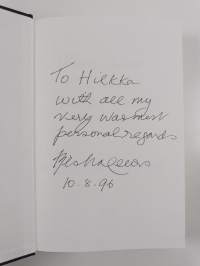 To Hilkka
with all my
very warmest
personal regards
10.8.96